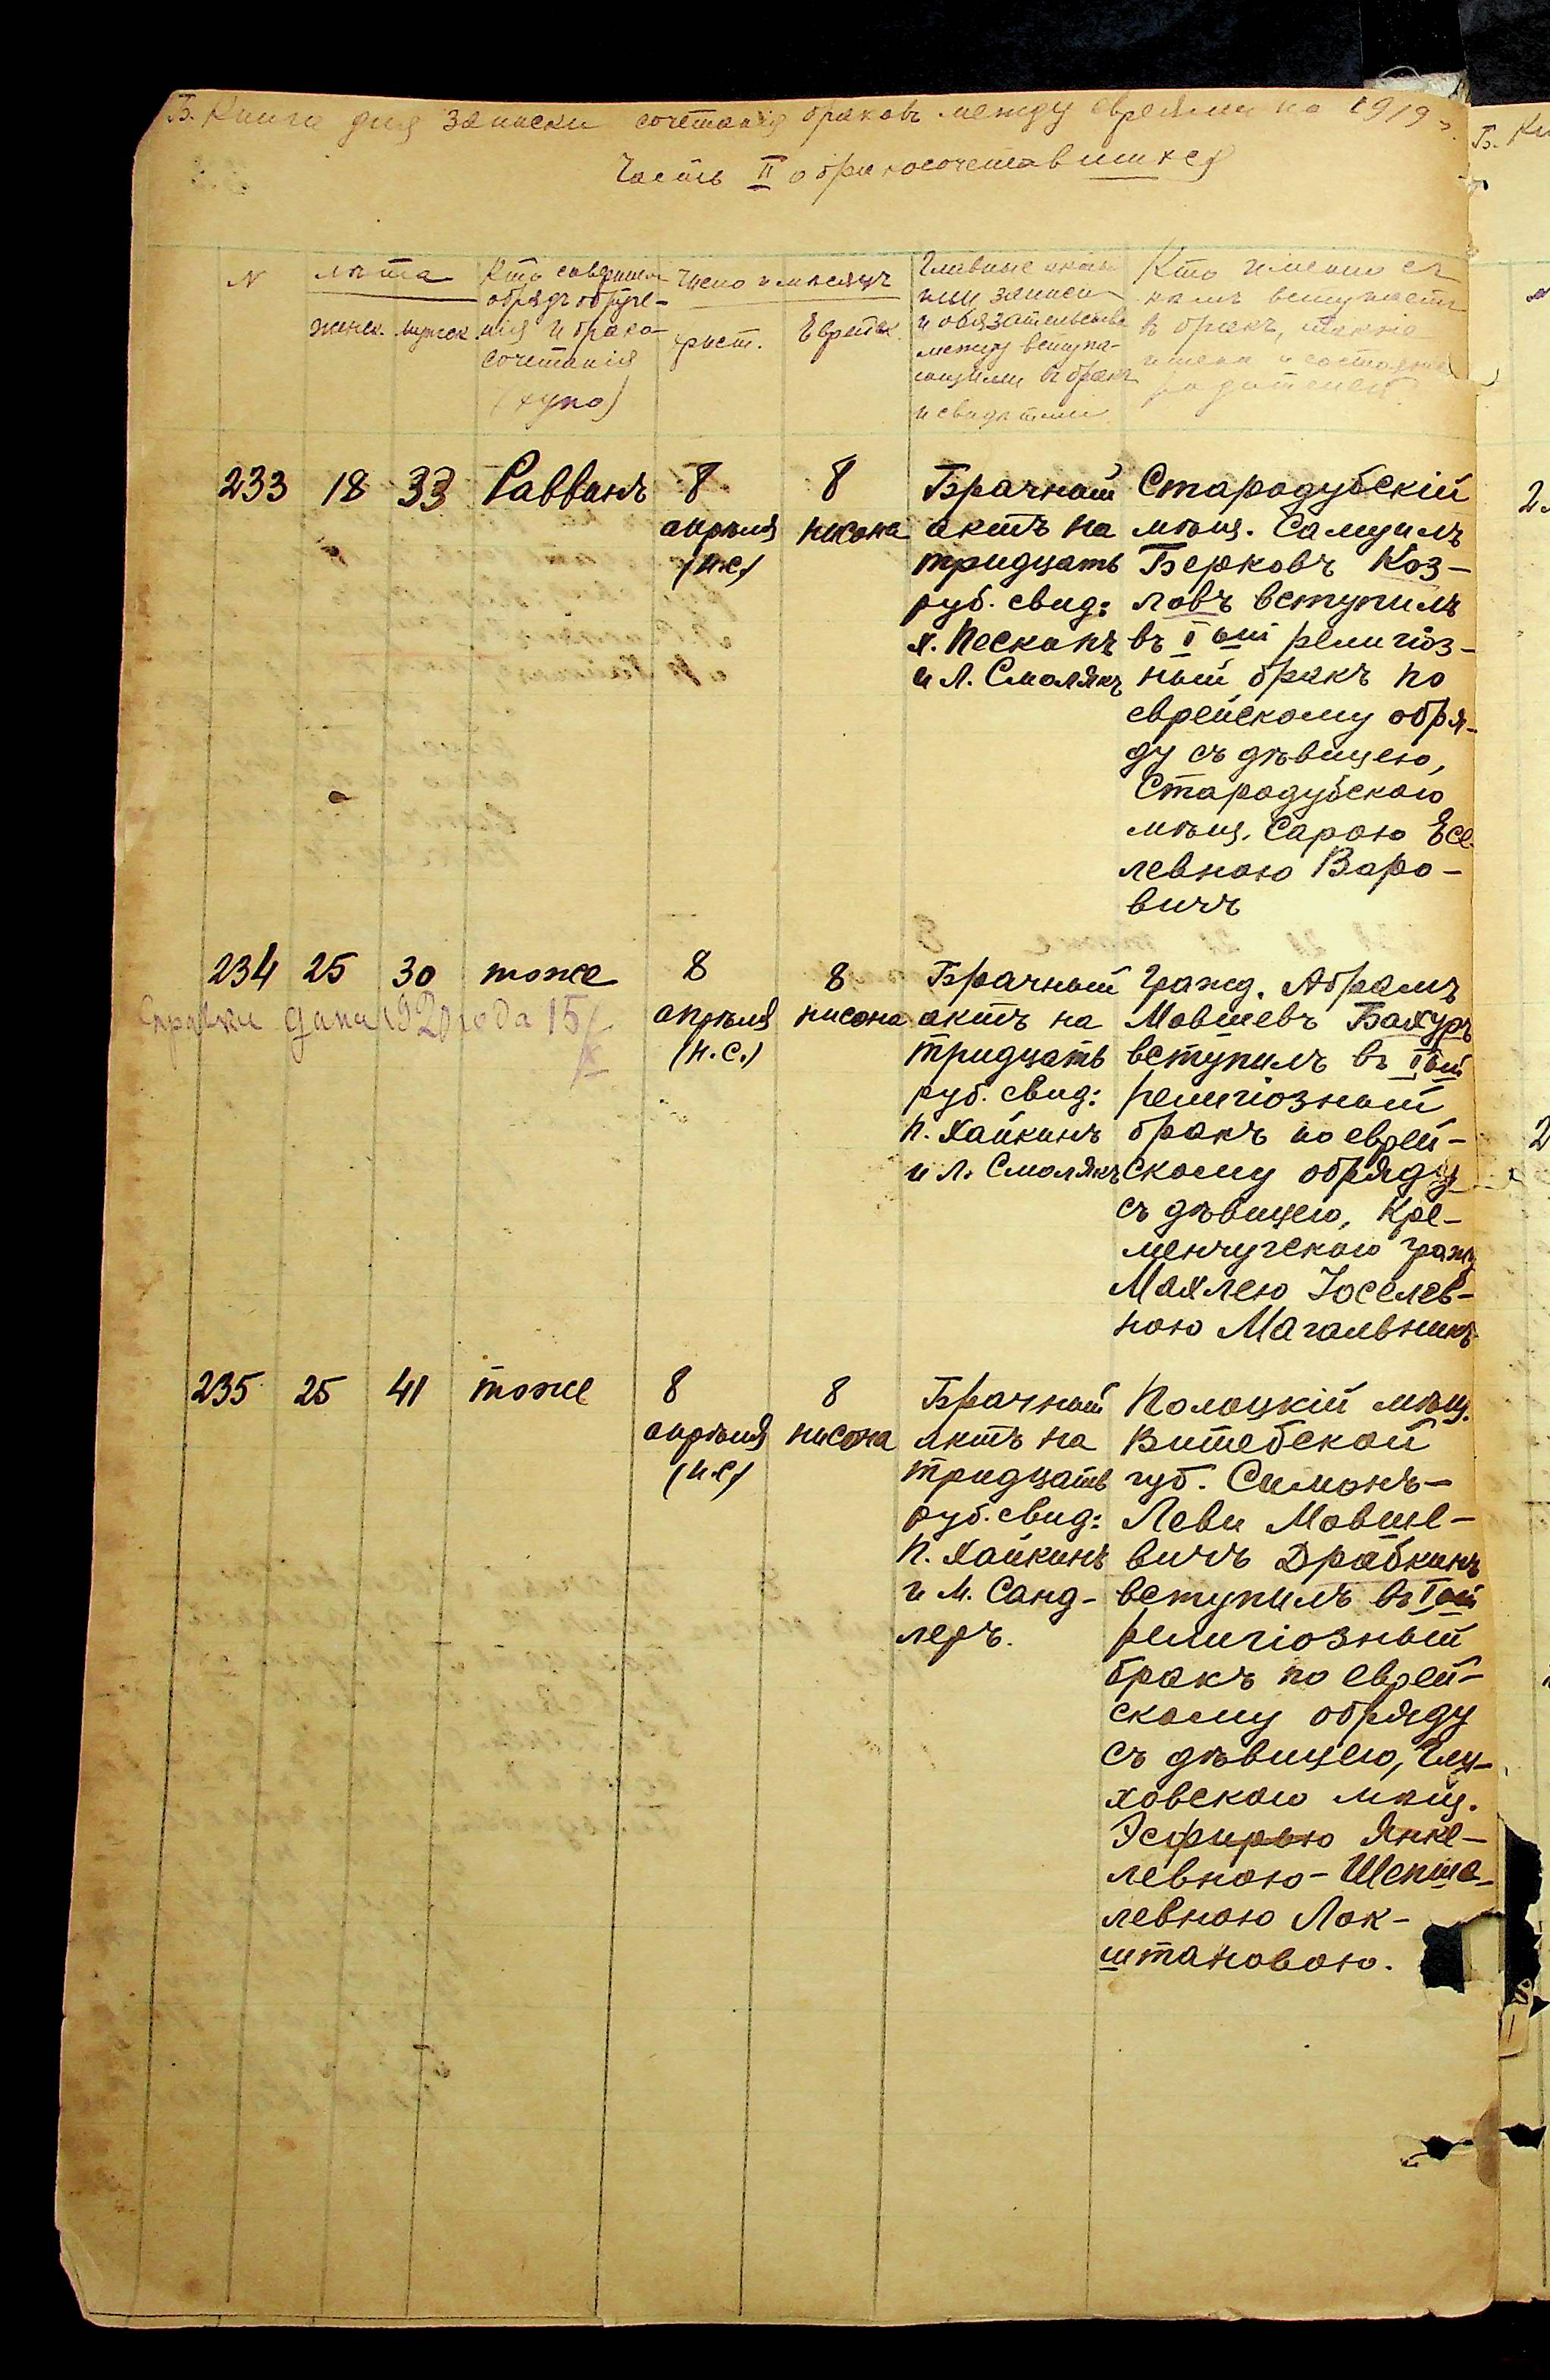 Б. Книга для записки сочетанія браковъ между евреями на 1919 г.
Часть II о бракосочетавшихся
N
лѣта
женск. мужск.
Кто совершил
обрядъ обруче-
нія и брако-
сочетанія
(хупо)
Число и мѣсяцъ
христ.
Еврейск.
Главные акты
или записи
и обязательства
между вступа-
ющими въ бракъ
и свидѣтели
Кто именно съ
кѣмъ вступаетъ
въ бракъ, также
имена и состояніе
родителей
233 18 33 Раввинъ
8
апрѣля
(н.с.)
8
нисона
Брачный
актъ на
тридцать
руб. свид:
х. Пескинъ
и Л. Смолякъ
Стародубскій
мѣщ. Самуилъ
Берковъ Коз-
ловъ вступилъ
въ I ый религіоз-
ный бракъ по
еврейскому обря-
ду съ дѣвицею,
Стародубскаго
мѣщ. Сарою Есе-
левною Воро-
вичъ
234 25 30 тоже
Справка дана 1920 года 15/X
8
апрѣля
(н.с.)
8
нисона
Брачный
актъ на
тридцать
руб. свид:
П. Хайкинъ
и Л. Смолякъ
Гражд. Абрамъ
Мовшевъ Бахуръ
вступилъ въ I ый
религіозный
бракъ по еврей-
скому обряду
съ дѣвицею, Кре-
менчугскаго гражд
Махлею Іоселев-
ною Магальникъ
235 25 41 тоже
8
апрѣля
(н.с.)
8
нисона
Брачный
актъ на
тридцать
руб. свид:
П. Хайкинъ
и М. Санд-
леръ.
Полоцкій мѣщ.
Витебской
губ. Симонъ-
Леви Мовше-
вичъ Драбкинъ
вступилъ въ I ый
религіозный
бракъ по еврей-
скому обряду
съ дѣвицею, Глу-
ховскаго мѣщ.
Эсфирью Янке-
левною-Шепше-
левною Лок-
штановою.